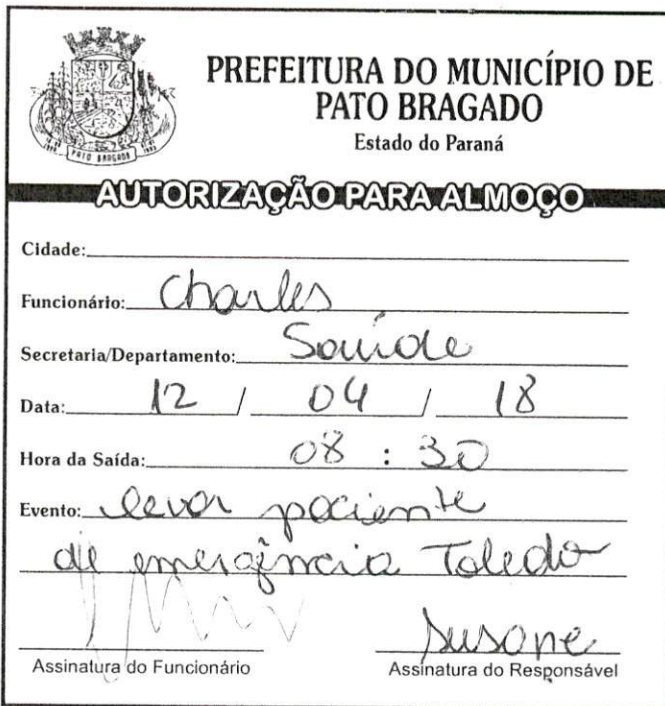 PREFEITURA DO MUNICÍPIO DE
PATO BRAGADO
Estado do Paraná
PATO BRAGADO
AUTORIZAÇÃO PARA ALMOÇO
Cidade:
Funcionário: Charles
Secretaria/Departamento: Saúde
Data: 12 / 04 / 18
Hora da Saída: 08 : 30
Evento: levar paciente
de emergência Toledo
Susane
Assinatura do Funcionário Assinatura do Responsável